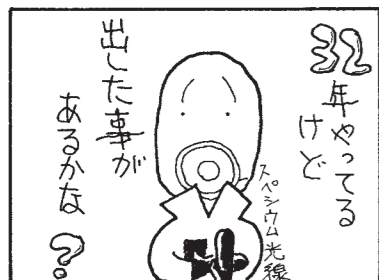 32年やってる
けど
スペシウム光線
出した事が
あるかな?